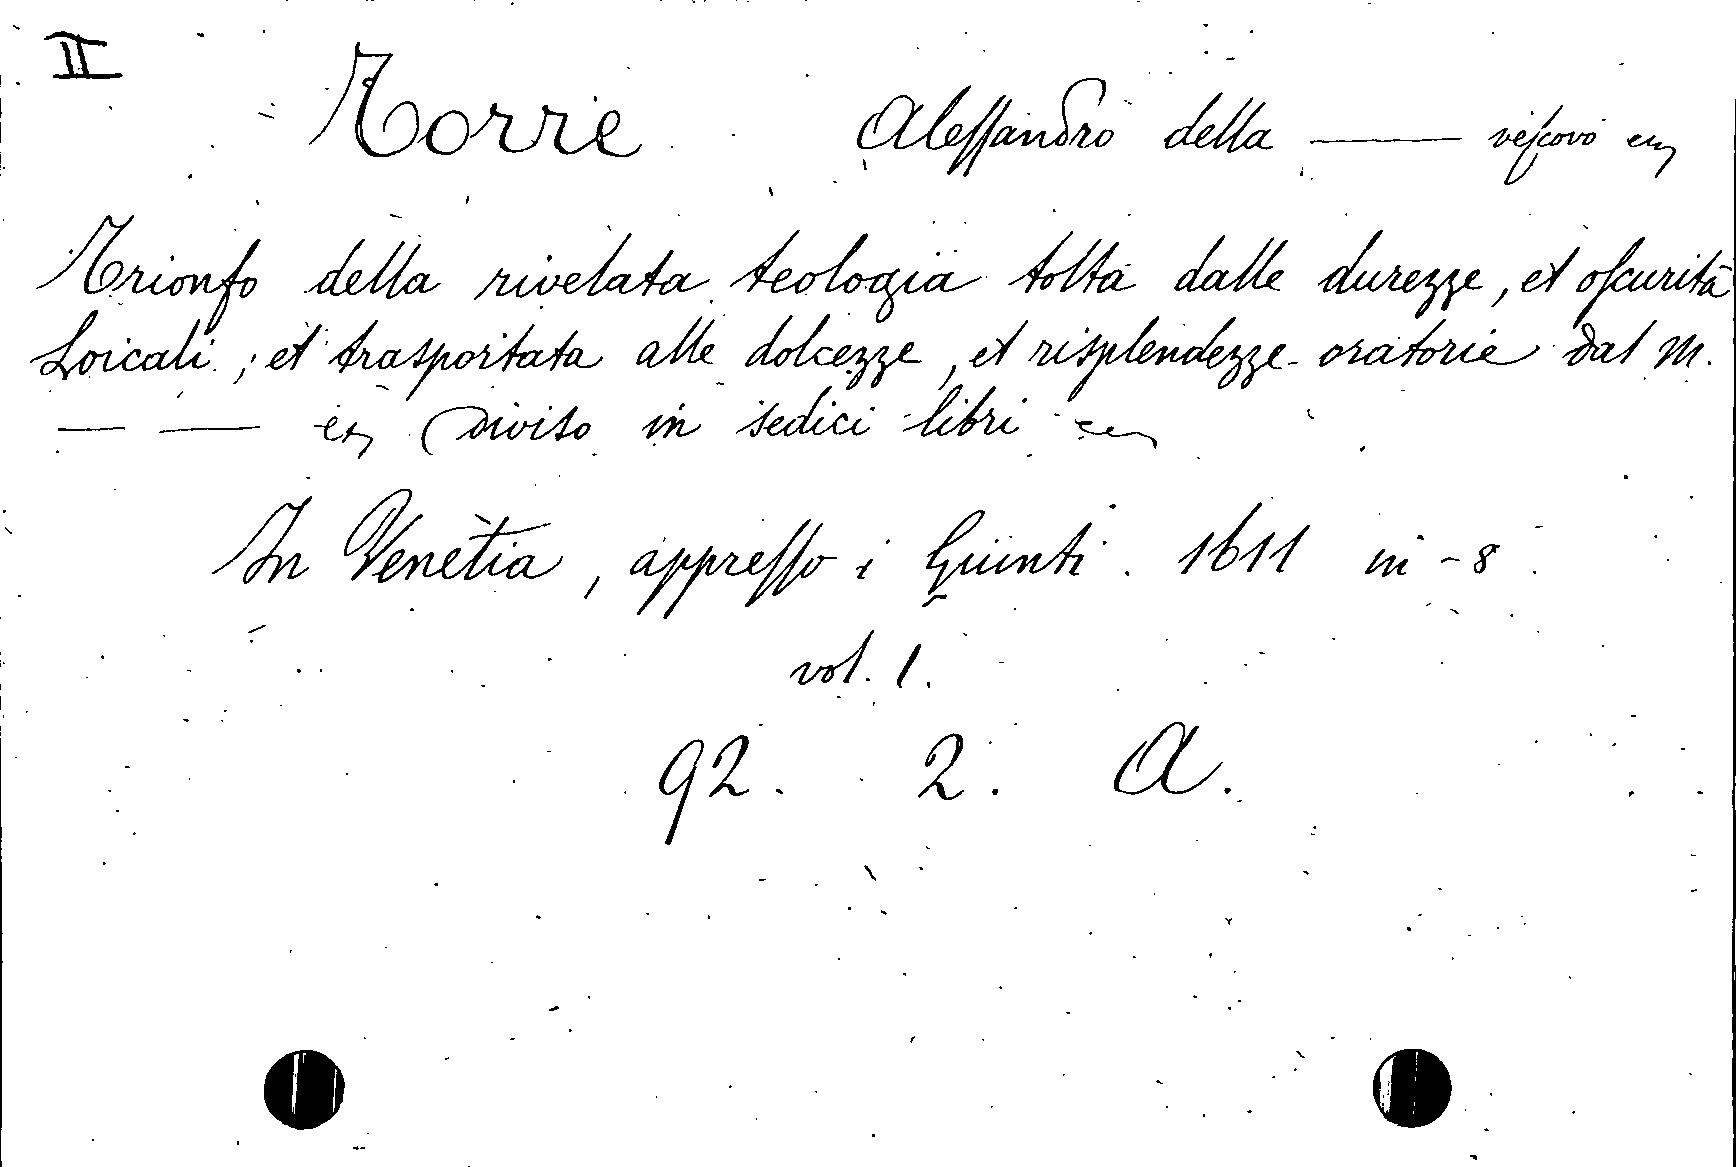 II
Torre Alessandro della —— vescovo ec
Trionfo della rivelata teologia tolta dalle durezze, et oscurità
Loicali, et trasportata alle dolcezze, et risplendezze oratorie dal M.
— —— ec Diviso in sedici libri ec
In Venetia, appresso i Giunti. 1611 in-8
vol. 1.
92. 2. A.